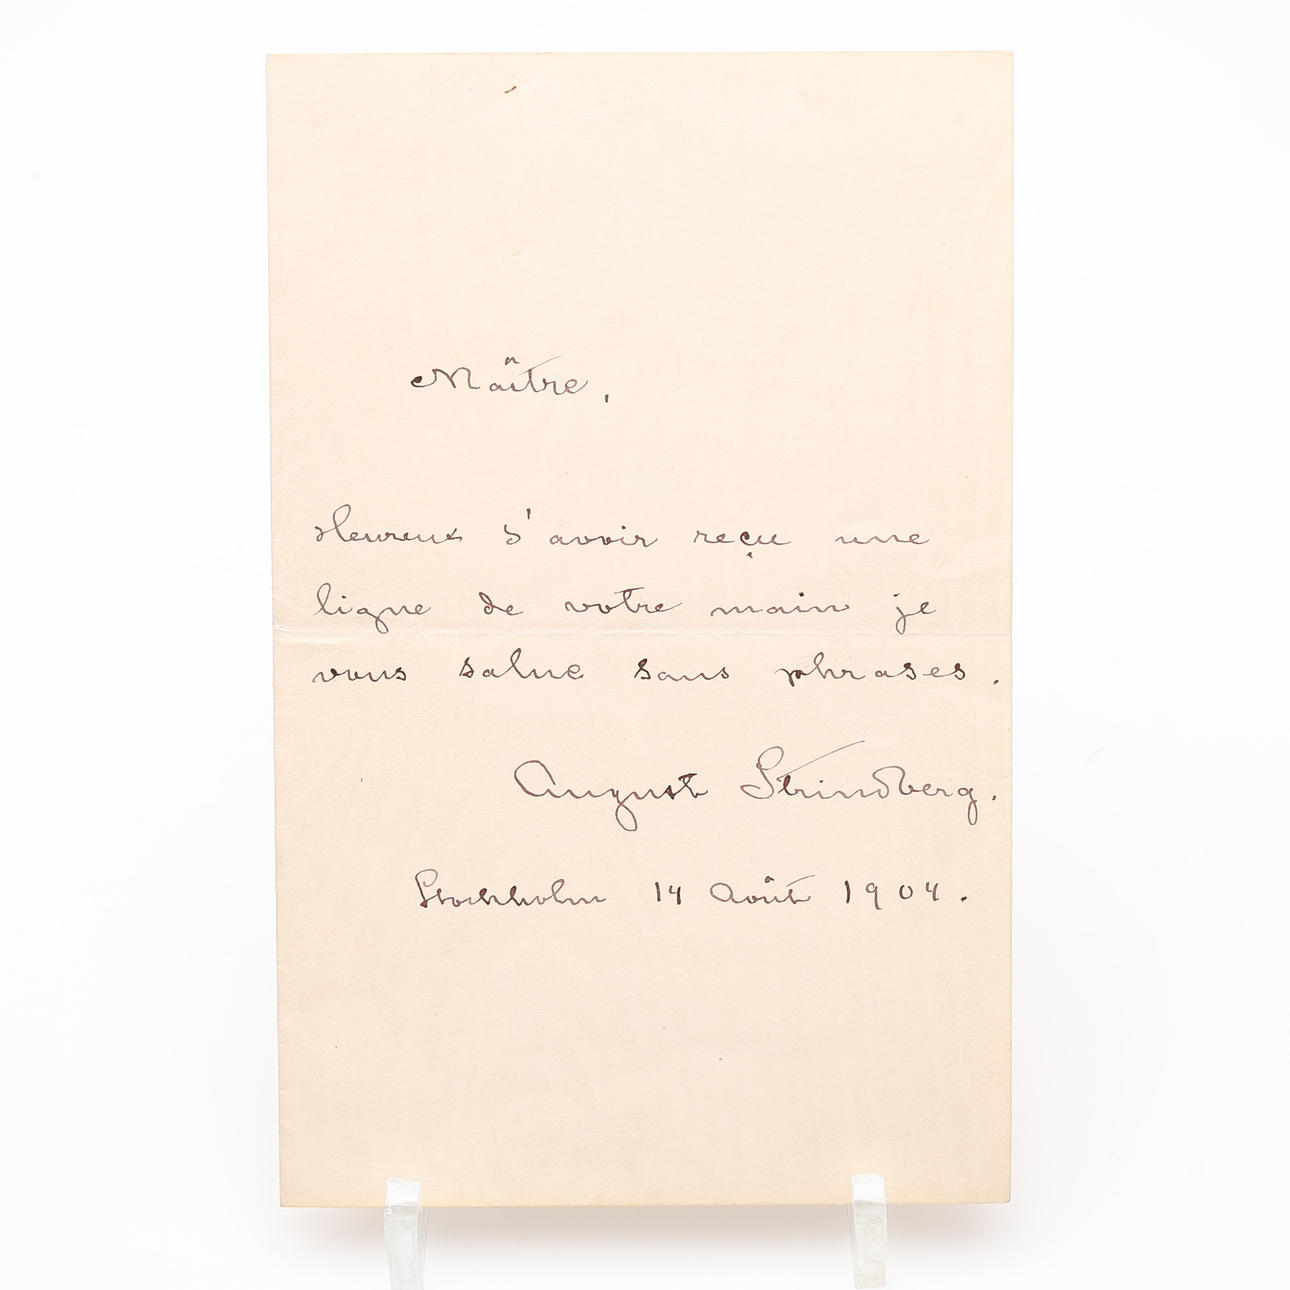 Maître,
Heureux d'avoir reçu une
ligne de votre main je
vous salue sans phrases.
August Strindberg.
Stockholm 14 Août 1904.